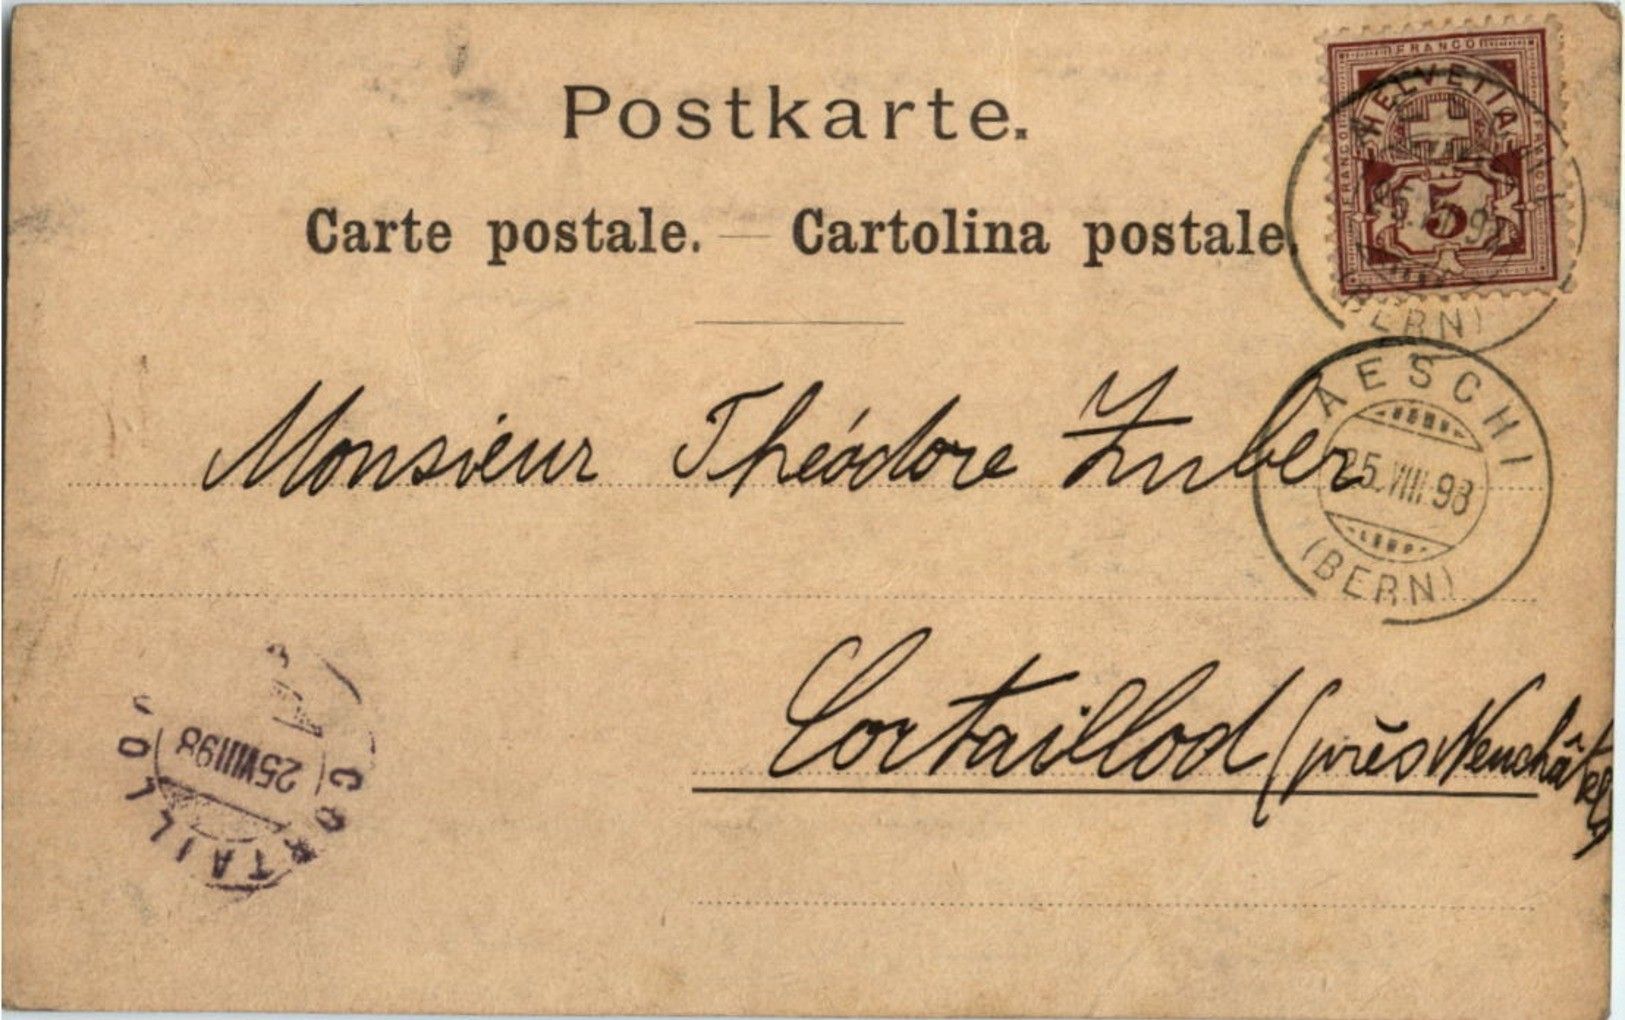 Postkarte.
Carte postale. — Cartolina postale.
FRANCO
FRANCO
FRANCO
HELVETIA
5
(BERN)
AESCHI
25.VIII.98
(BERN)
Monsieur Théodore Zuber
Cortaillod (près Neuchâtel)
CORTAILLOD
25 VIII 98